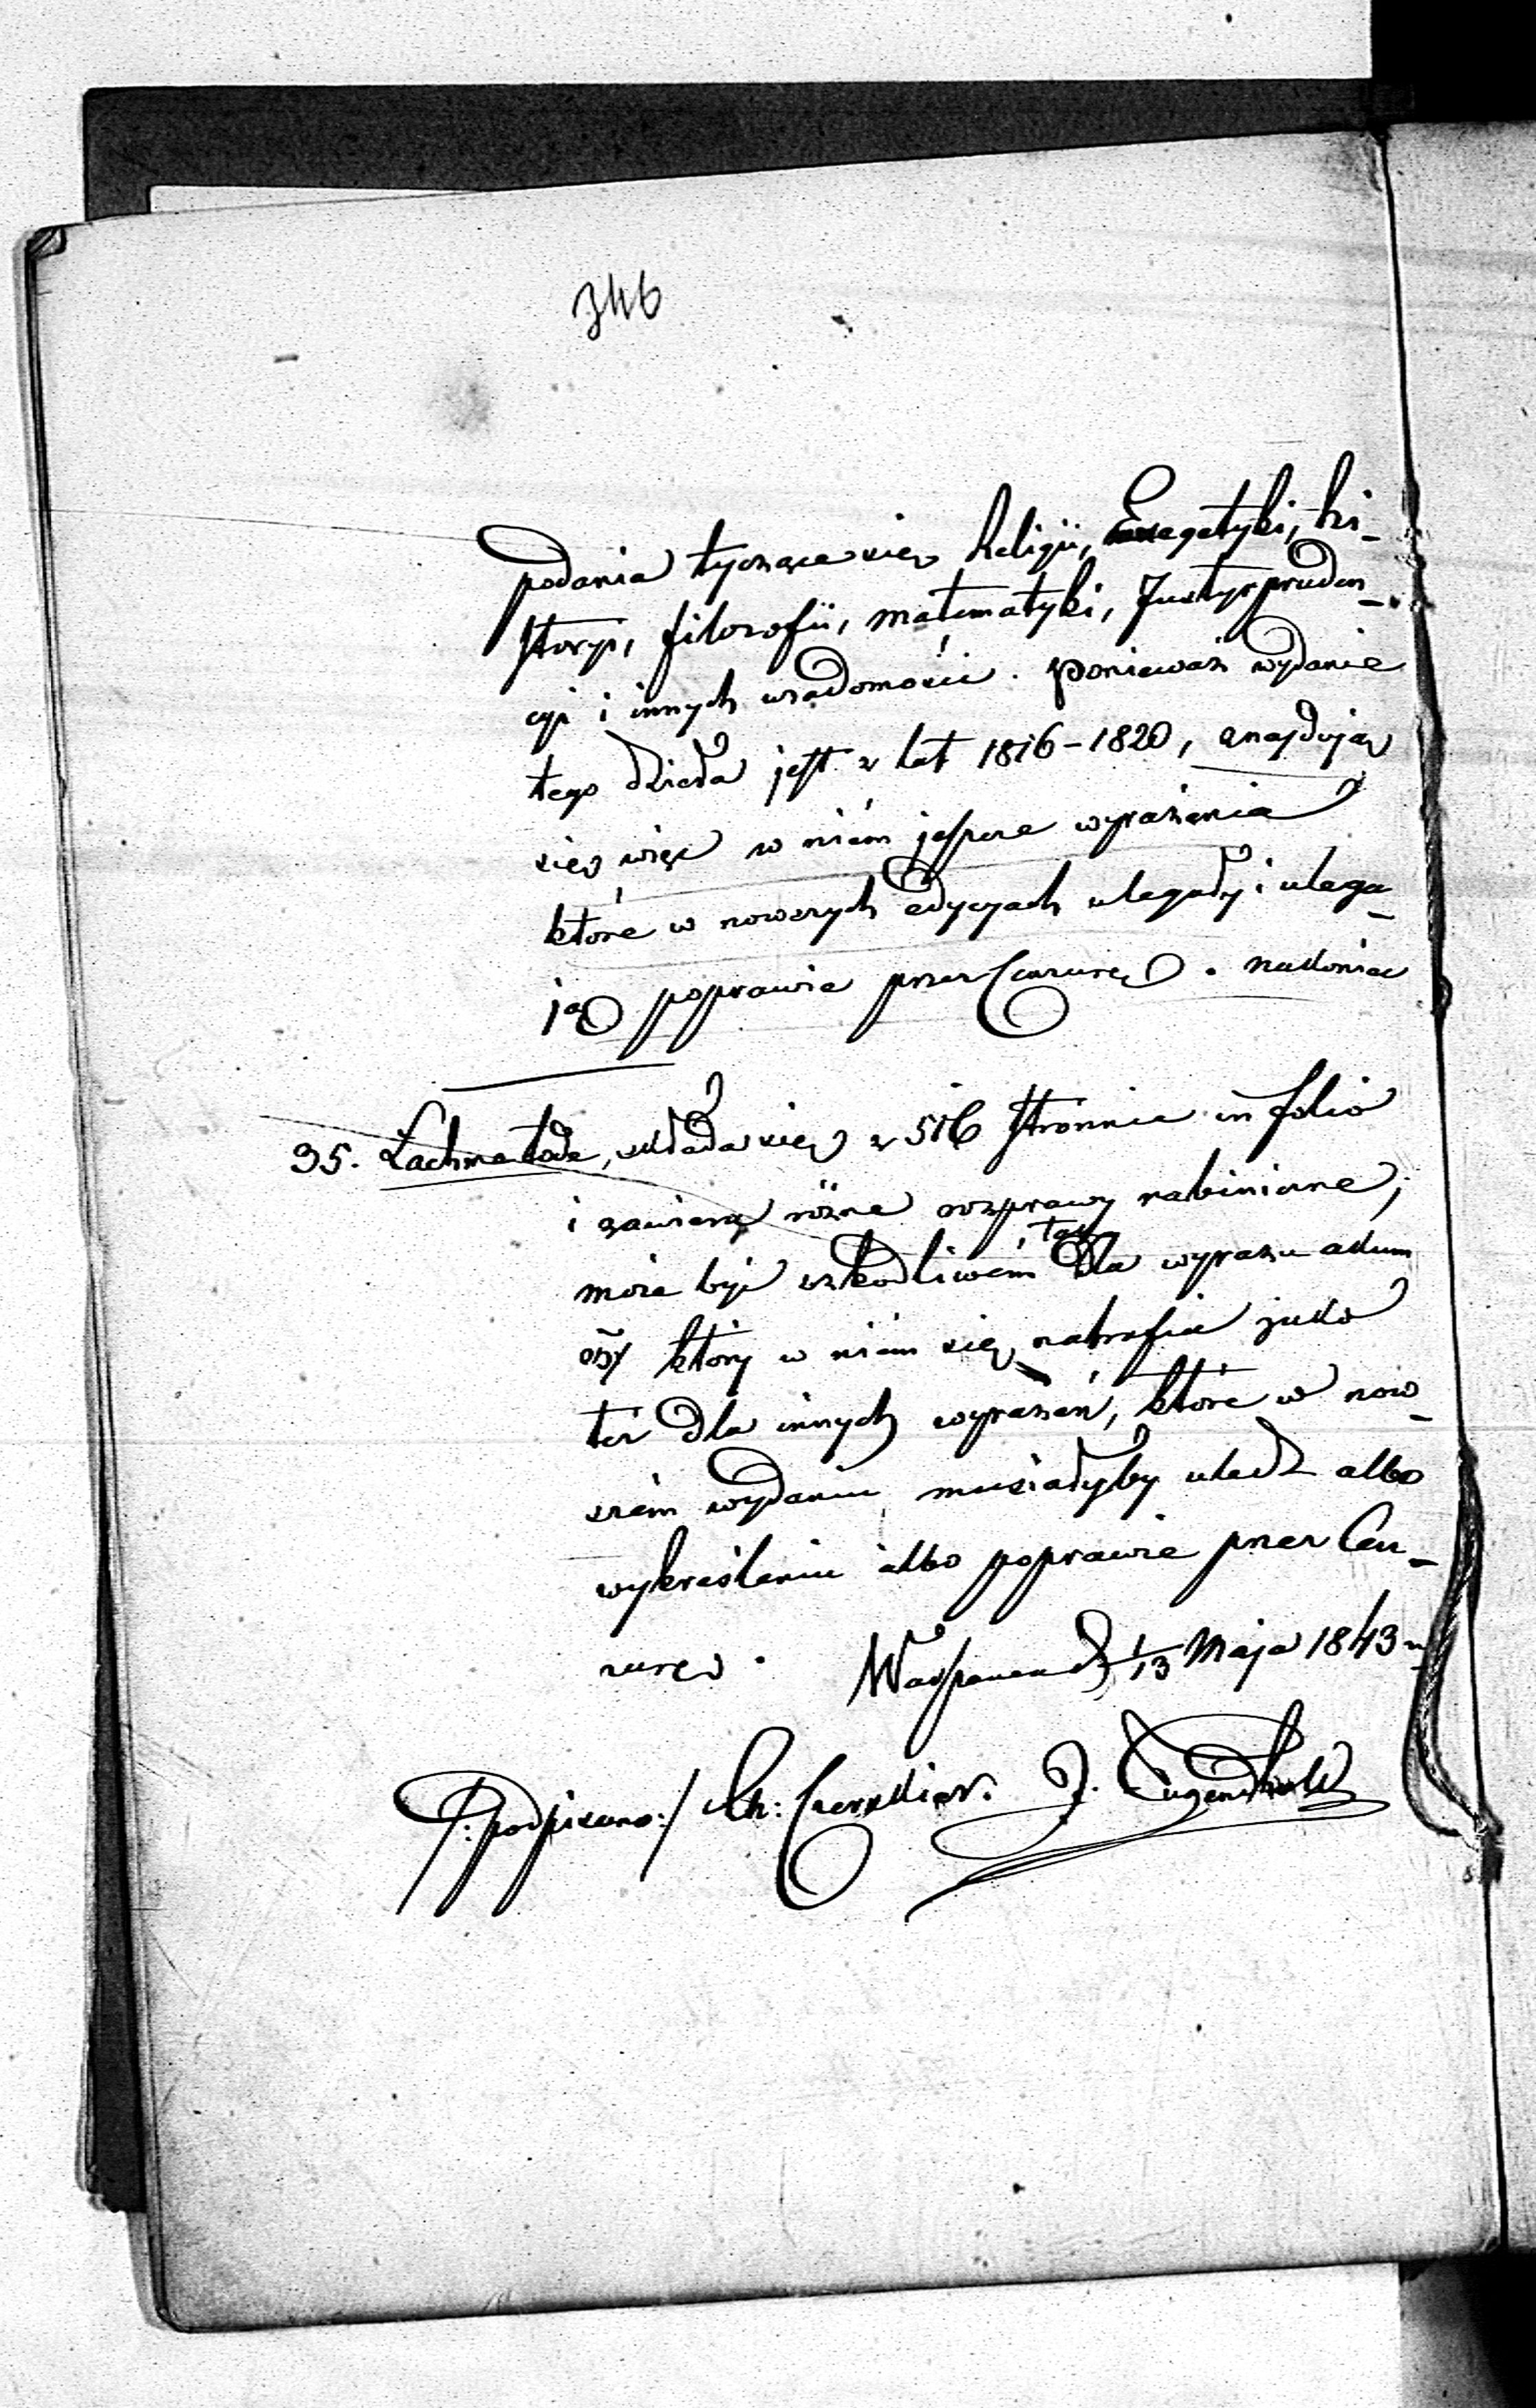 346
podania tyczące się Religii, Exegetyki, hi-
storyi, filozofii, matematyki, Justysprruden-
cyi i innych wiadomości. Ponieważ wydanie
tego dzieła jest z lat 1816-1820, znajdują
się więc w niém jeszcze wyrażenia
które w nowszych edycyach ulegały i ulega-
ją poprawie przez Cenzurę. nakoniec
35. Lachma toda, składa się z 516 stronnic in folio
i zawiera różne rozprawy rabiniczne;
może być szkodliwém, tak dla wyrazu akum
który w niém się natrafia jako
też dla innych wyrażeń, które w now-
szém wydaniu musiałyby uledz albo
wykreśleniu albo poprawie przez Cen-
zurę. Warszawa d. 1/13 Maja 1843 r.
/:podpisano:/ Ch: Czerskier. J. Tugendhold